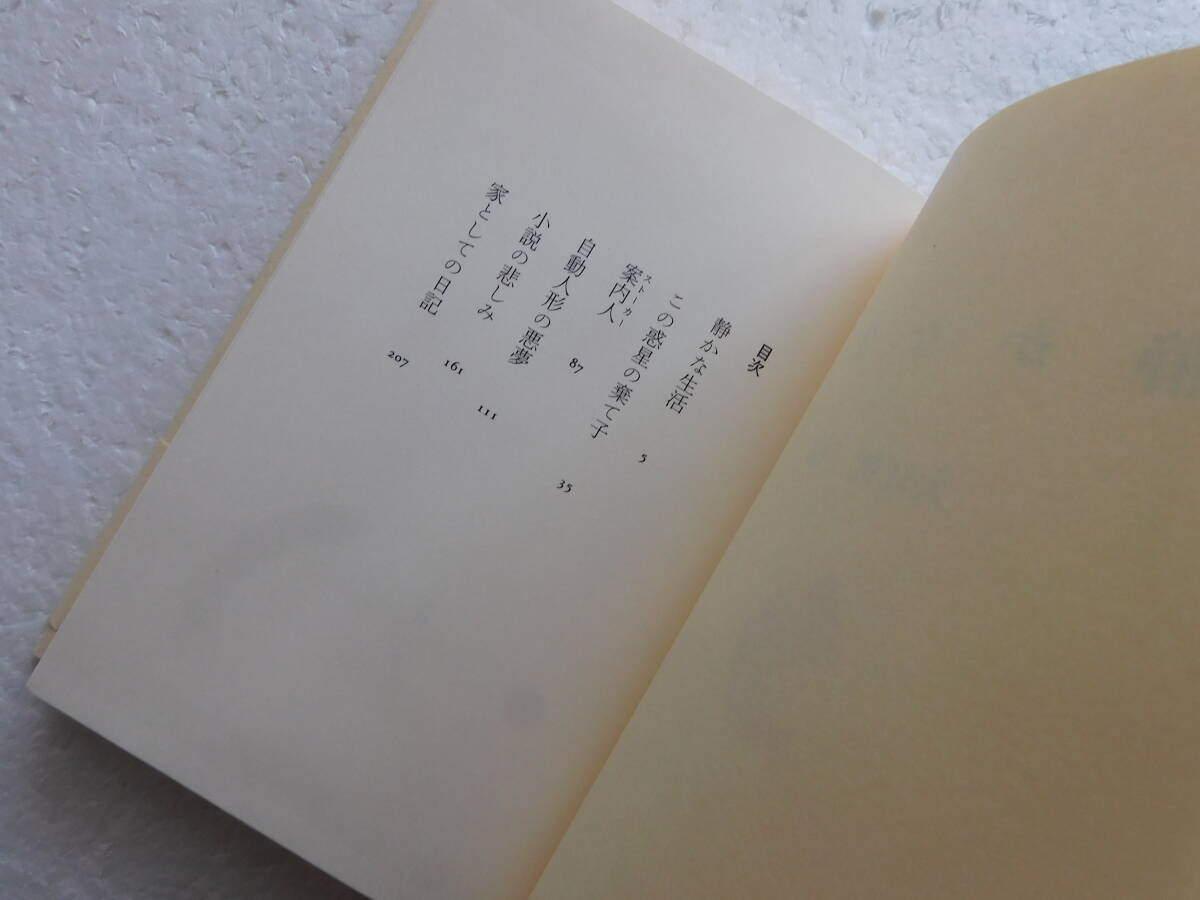 目次
静かな生活 5
この惑星の棄て子 35
案内人 ストーカー 87
自動人形の悪夢 111
小説の悲しみ 161
家としての日記 207